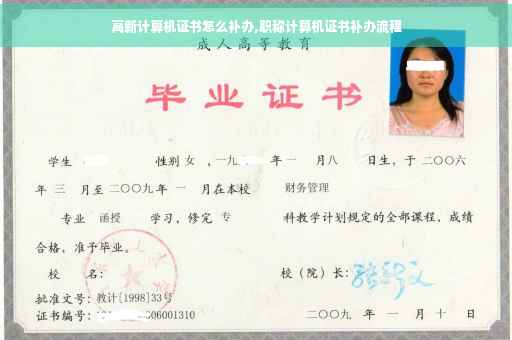 高新计算机证书怎么补办,职称计算机证书补办流程
成人高等教育
毕业证书
学生 性别 女 ,一九 年一 月八 日生,于二〇〇六
年 三 月至二〇〇九年 一 月在本校 财务管理
专业 函授 学习,修完 专 科教学计划规定的全部课程,成绩
合格,准予毕业。
校 名: 校(院)长:
批准文号:教计[1998]33号
证书编号: 06001310 二〇〇九 年 一 月 十 日